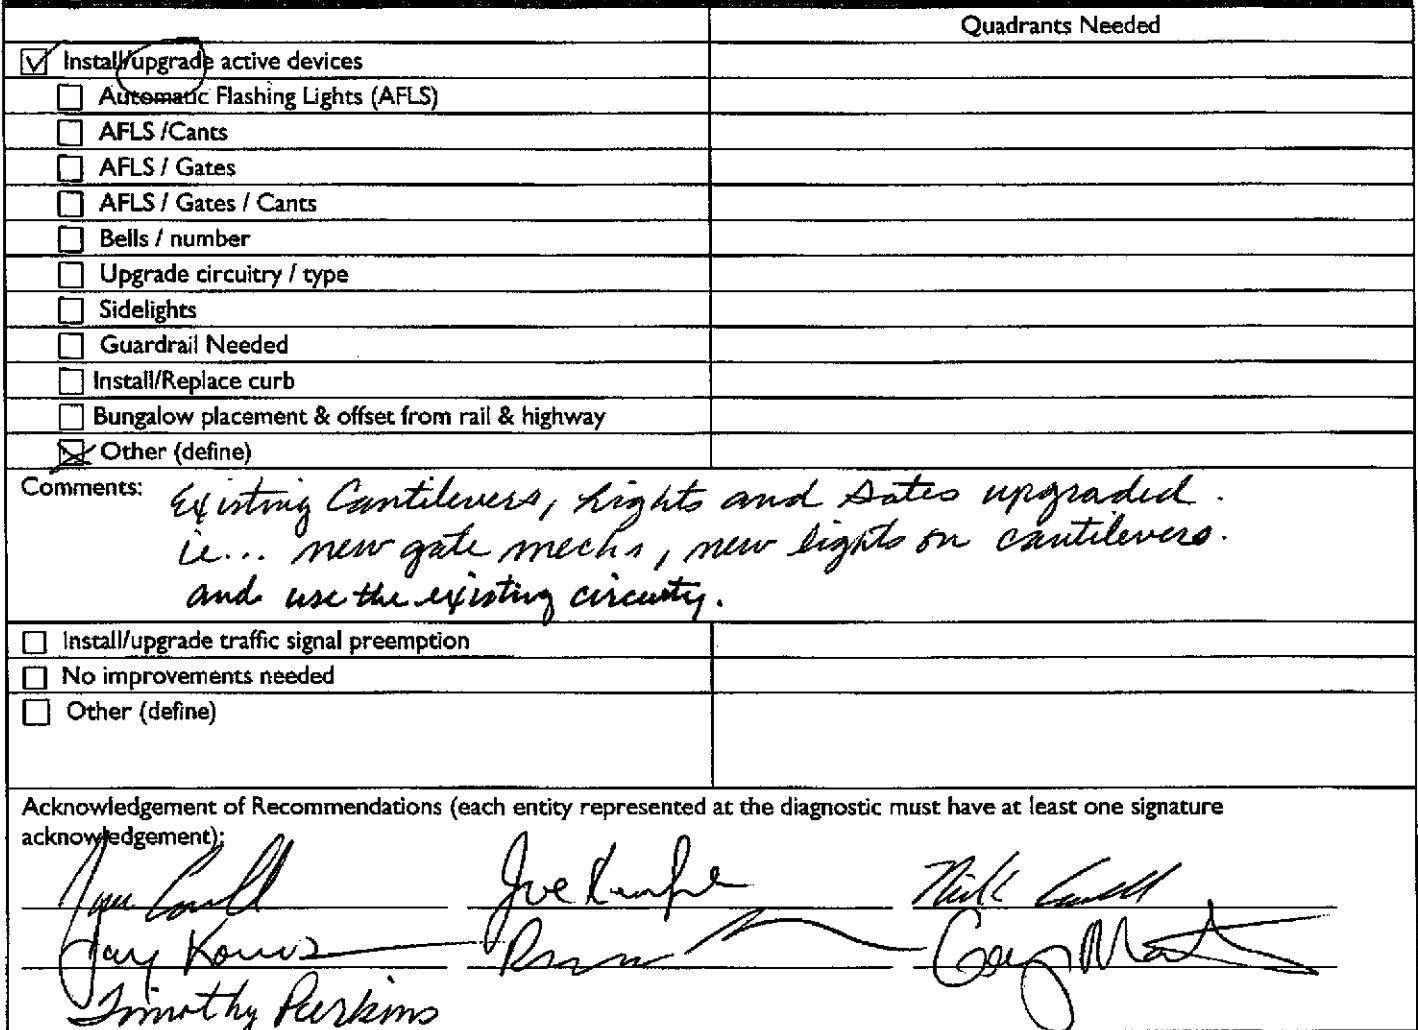 Quadrants Needed
☑ Install/upgrade active devices
☐ Automatic Flashing Lights (AFLS)
☐ AFLS /Cants
☐ AFLS / Gates
☐ AFLS / Gates / Cants
☐ Bells / number
☐ Upgrade circuitry / type
☐ Sidelights
☐ Guardrail Needed
☐ Install/Replace curb
☐ Bungalow placement & offset from rail & highway
☒ Other (define)
Comments: Existing Cantilevers, Lights and Gates upgraded.
ie... new gate mechs, new lights on cantilevers.
and use the existing circuity.
☐ Install/upgrade traffic signal preemption
☐ No improvements needed
☐ Other (define)
Acknowledgement of Recommendations (each entity represented at the diagnostic must have at least one signature
acknowledgement):
Joe Nick
Timothy Perkins